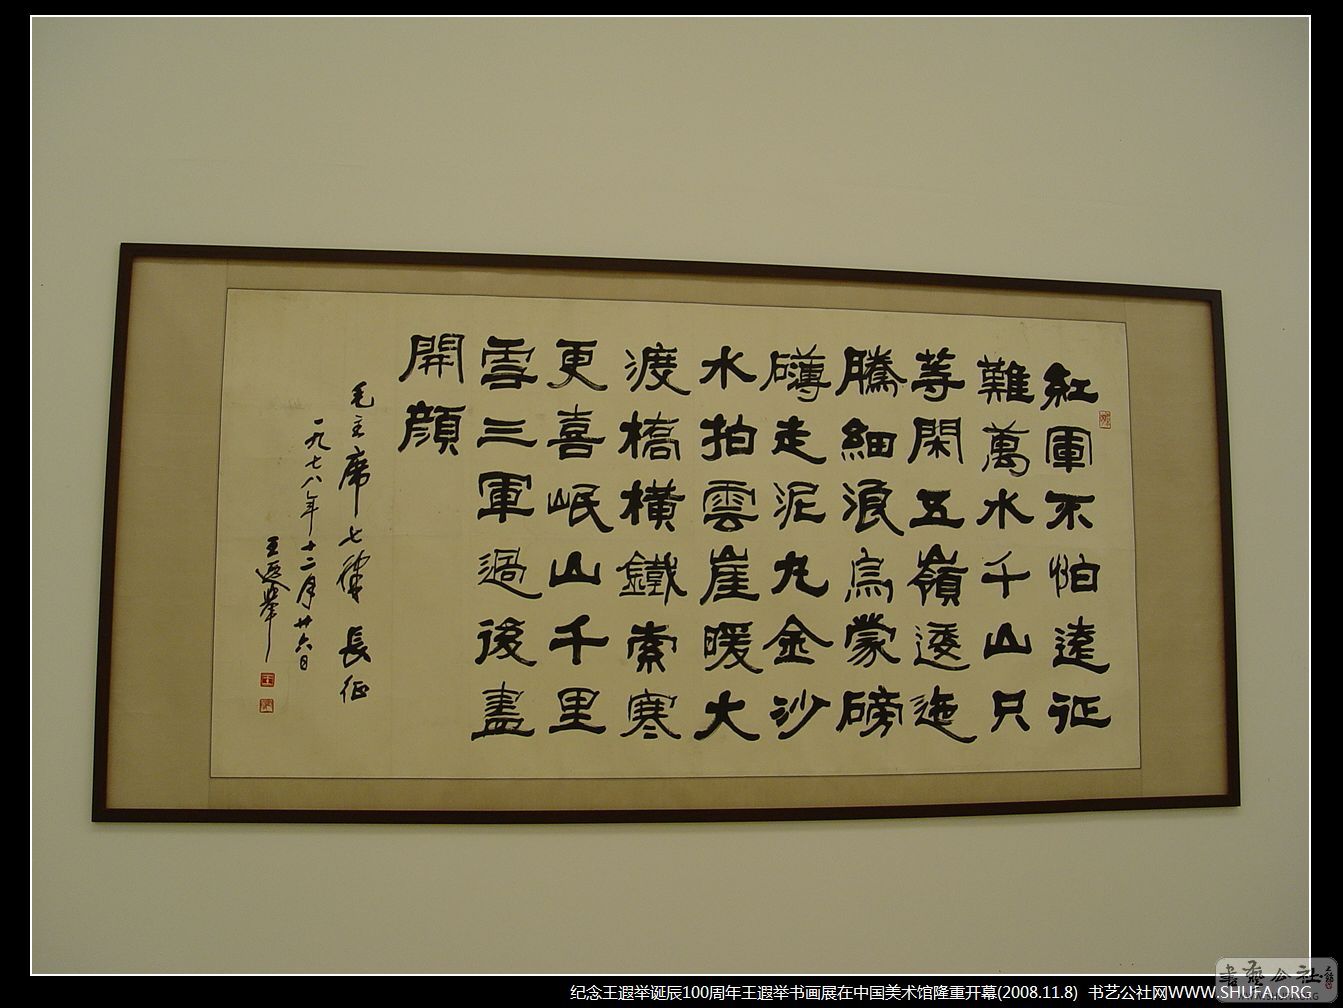 紅軍不怕遠征
難萬水千山只
等閑五嶺逶迤
騰細浪烏蒙磅
礴走泥丸金沙
水拍雲崖暖大
渡橋橫鐵索寒
更喜岷山千里
雪三軍過後盡
開顏
毛主席七律長征
一九七八年十二月廿六日
王遐舉
纪念王遐举诞辰100周年王遐举书画展在中国美术馆隆重开幕(2008.11.8) 书艺公社网WWW.SHUFA.ORG
書藝公社